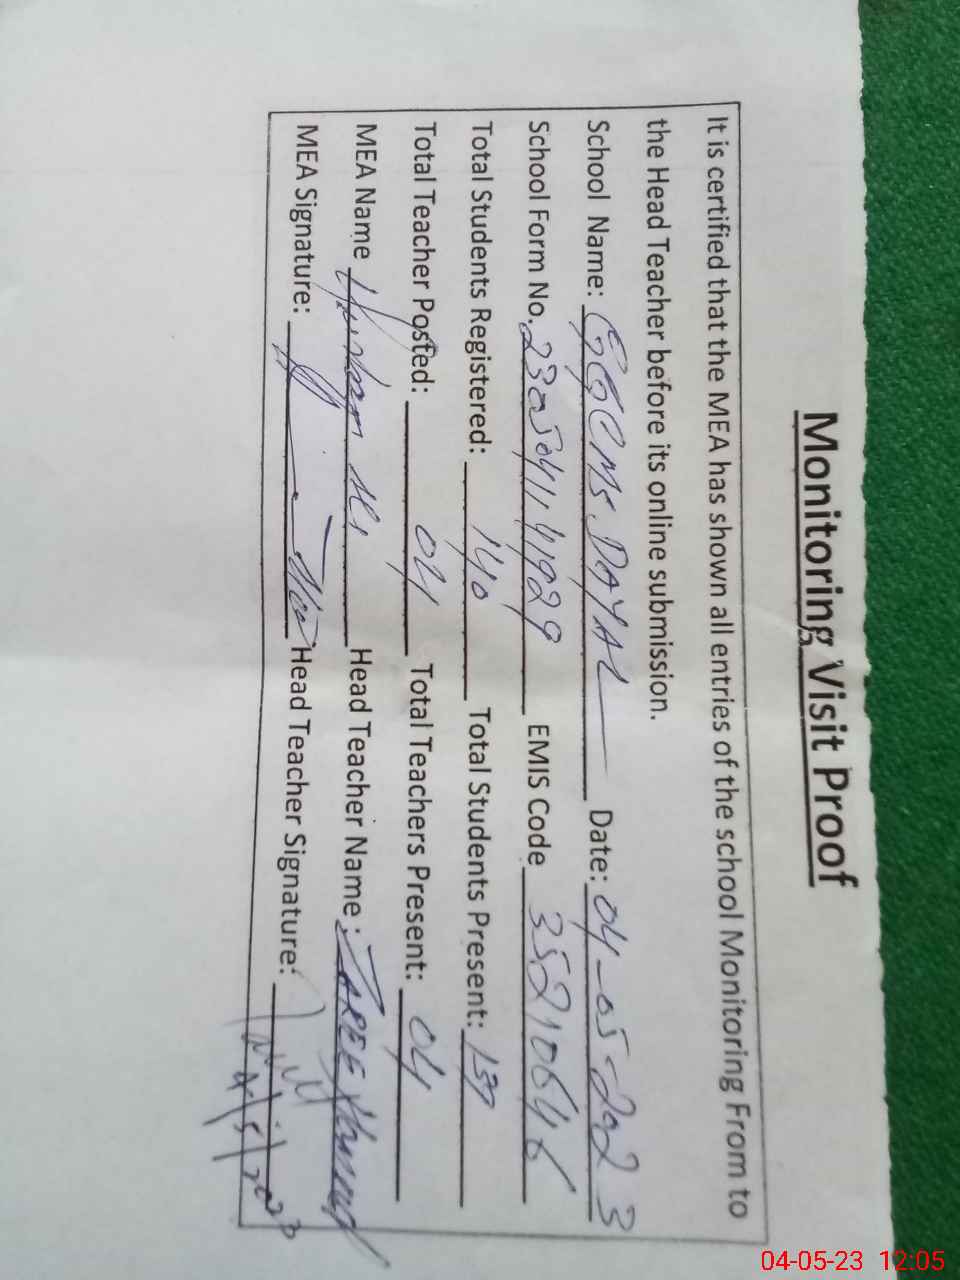 Monitoring Visit Proof
It is certified that the MEA has shown all entries of the school Monitoring From to
the Head Teacher before its online submission.
School Name: GGCMS. DAYAL Date: 04-05-2023
School Form No. EMIS Code 35210646
Total Students Registered: 140 Total Students Present: 137
Total Teacher Posted: 04 Total Teachers Present: 04
MEA Name Head Teacher Name:
MEA Signature: Head Teacher Signature:
4/5/2023
04-05-23 12:05